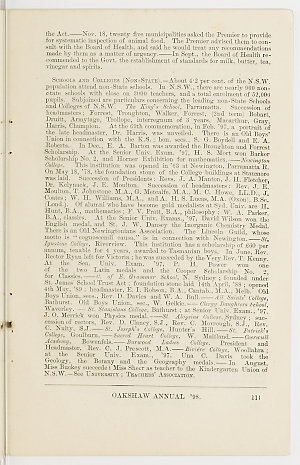 the Act.——Nov. 18, twenty five municipalities asked the Premier to provide
for systematic inspection of animal food. The Premier advised them to con-
sult with the Board of Health, and said he would treat any recommendations
made by them as a matter of urgency.——In Sept., the Board of Health re-
commended to the Govt. the establishment of standards for milk, butter, tea,
vinegar and spirits.
SCHOOLS AND COLLEGES (NON-STATE).—About 4·2 per cent. of the N.S.W.
population attend non-State schools. In N.S.W., there are nearly 900 non-
state schools with close on 3000 teachers, and a total enrolment of 52,000
pupils. Subjoined are particulars concerning the leading non-State Schools
and Colleges of N.S.W. The King's School, Parramatta. Succession of
headmasters: Forrest, Troughton, Walker, Forrest, (2nd term)
Harris, Champion. At the 65th commemoration, in Feb. '97, a portrait of
the late headmaster, Dr. Harris, was unveiled. There is an Old Boys'
Union in connection with the K.S.; hon. secs.,
Roberts. In Dec., E. A. Barton was awarded the Broughton and Forrest
Scholarship. At the Senior Univ. Exam., '97, H. S. Mort won Barker
Scholarship No. 2, and Horner Exhibition for mathematics.——Newington
College. This institution was opened in '63 at Newington, Parramatta R.
On May 18, '78, the foundation stone of the College buildings at Stanmore
was laid. Succession of Presidents: Revs. J. A. Manton, J. H. Fletcher,
Dr. Kelynack, J. E. Moulton. Succession of headmasters: Rev. J. E.
Moulton, T. Johnstone M.A., G. Metcalfe, M.A., M. C. Howe, LL.D., J.
Coates; W. H. Williams, M.A., and A. H. S. Lucas, M.A. (Oxon), B.Sc.
(Lond.). Of alumni who have become gold medalists at Syd. Univ. are H.
Hunt, B.A., mathematics; F. V. Pratt, B.A., philosophy; W. A. Parker,
B.A., classics. At the Senior Univ. Exams., '97, David Wilson won the
English medal, and St. J. W. Dansey the Inorganic Chemistry Medal.
There is an Old Newingtonians Association. The Lincoln Guild, whose
motto is in connection with Newington.——St.
Ignatius College, Riverview. This institution has a scholarship of £60 per
annum, tenable for 4 years, awarded to Tasmanian boys. In Jan., Rev.
Rector Ryan left for Victoria; he was succeeded by the Very Rev. T. Keating.
At the Sen. Univ. Exam. '97, P. H. Power won one
of the two Latin medals and the Cooper Scholarship No. 2,
for Classics. C. of E. Grammar School, N. Sydney; founded under
St. James School Trust Act; foundation stone laid 14th April, '88; opened
4th May, '89; headmaster, E. I. Robson, B.A., Cantab., M.A., Melb. Old
Boys Union, secs., Rev. D. Davies and W. A. Bull.——All Saints' College,
Bathurst. Old Boys Union, sec., W. Gelkie.——Clergy Daughters School,
Waverley.—— St. Stanislaus College, Bathurst; at Senior Univ. Exam., '97,
J. O. Merrick won Physics medal.——St. Aloysius College, Sydney; suc-
cession of rectors, Rev. D. Clancy, S.J., Rev. C. Morrogh, S.J., Rev.
C. Nulty, S.J.—— St. Joseph's College, Hunter's Hill.—— St. Patrick's
College, Goulburn.——Sacred Heart College, W. Maitland.——
Academy, Bowenfels.——Burwood Ladies College. President and
Headmaster, Rev. C. J. Prescott, M.A.——Riviere College, Woollahra;
at the Senior Univ. Exam., '97, Una C. Davis took the
Geology, the Botany and the Geography medals.——In August,
Miss Buckey succeeded Miss Scheer as teacher to the Kindergarten Union of
N.S.W.—See UNIVERSITY; TEACHERS' ASSOCIATION.
OAKSHAW ANNUAL '98. 111